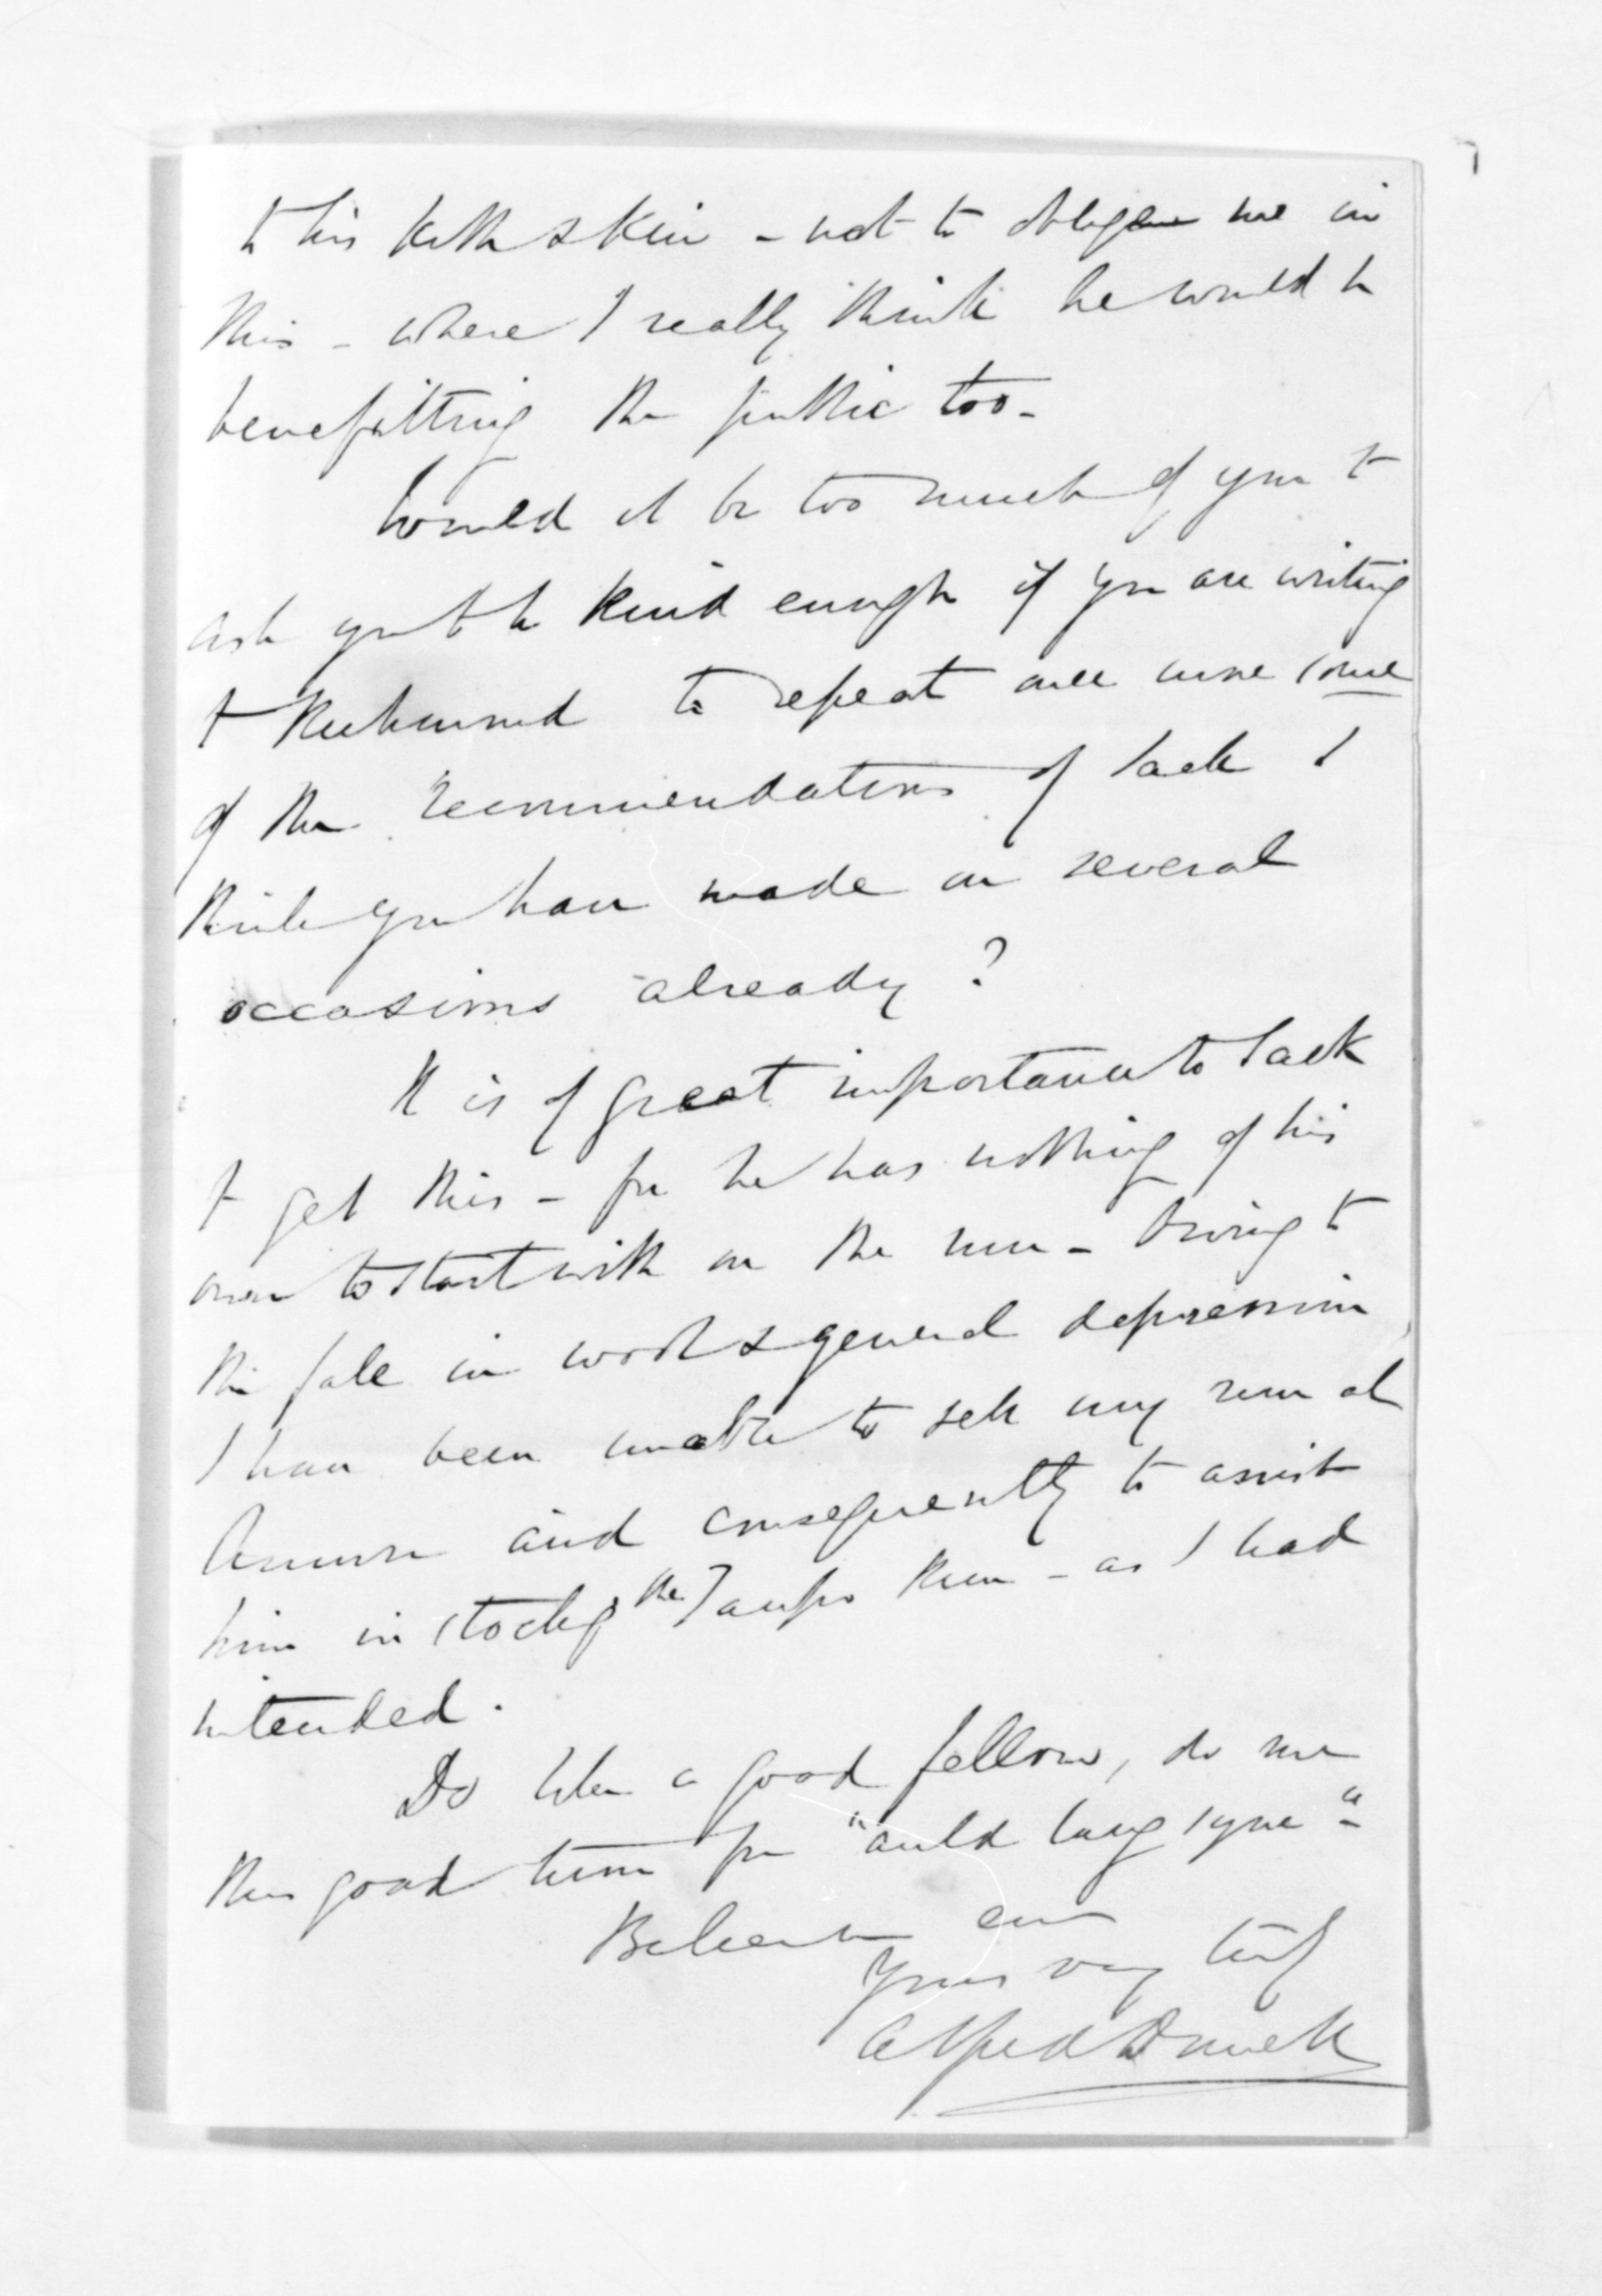 to his kith & kin - not to oblige me in
this - where I really think he would be
benefitting the public too -
Would it be too much of you to
ask you to be kind enough if you are writing
to Richmond to repeat once more some
of the recommendations of Jack I
think you have made on several
occasions already ?
It is of great importance to Jack
to get this - for he has nothing of his
own to start with on the run - Owing to
the fall in wool & general depression,
I have been unable to sell my run at
and consequently to assist
him in stockg the Taupo Run - as I had
intended .
Do like a good fellow, do me
this good turn for "auld lang syne" -
Believe me
Yours very truly
Alfred Domett